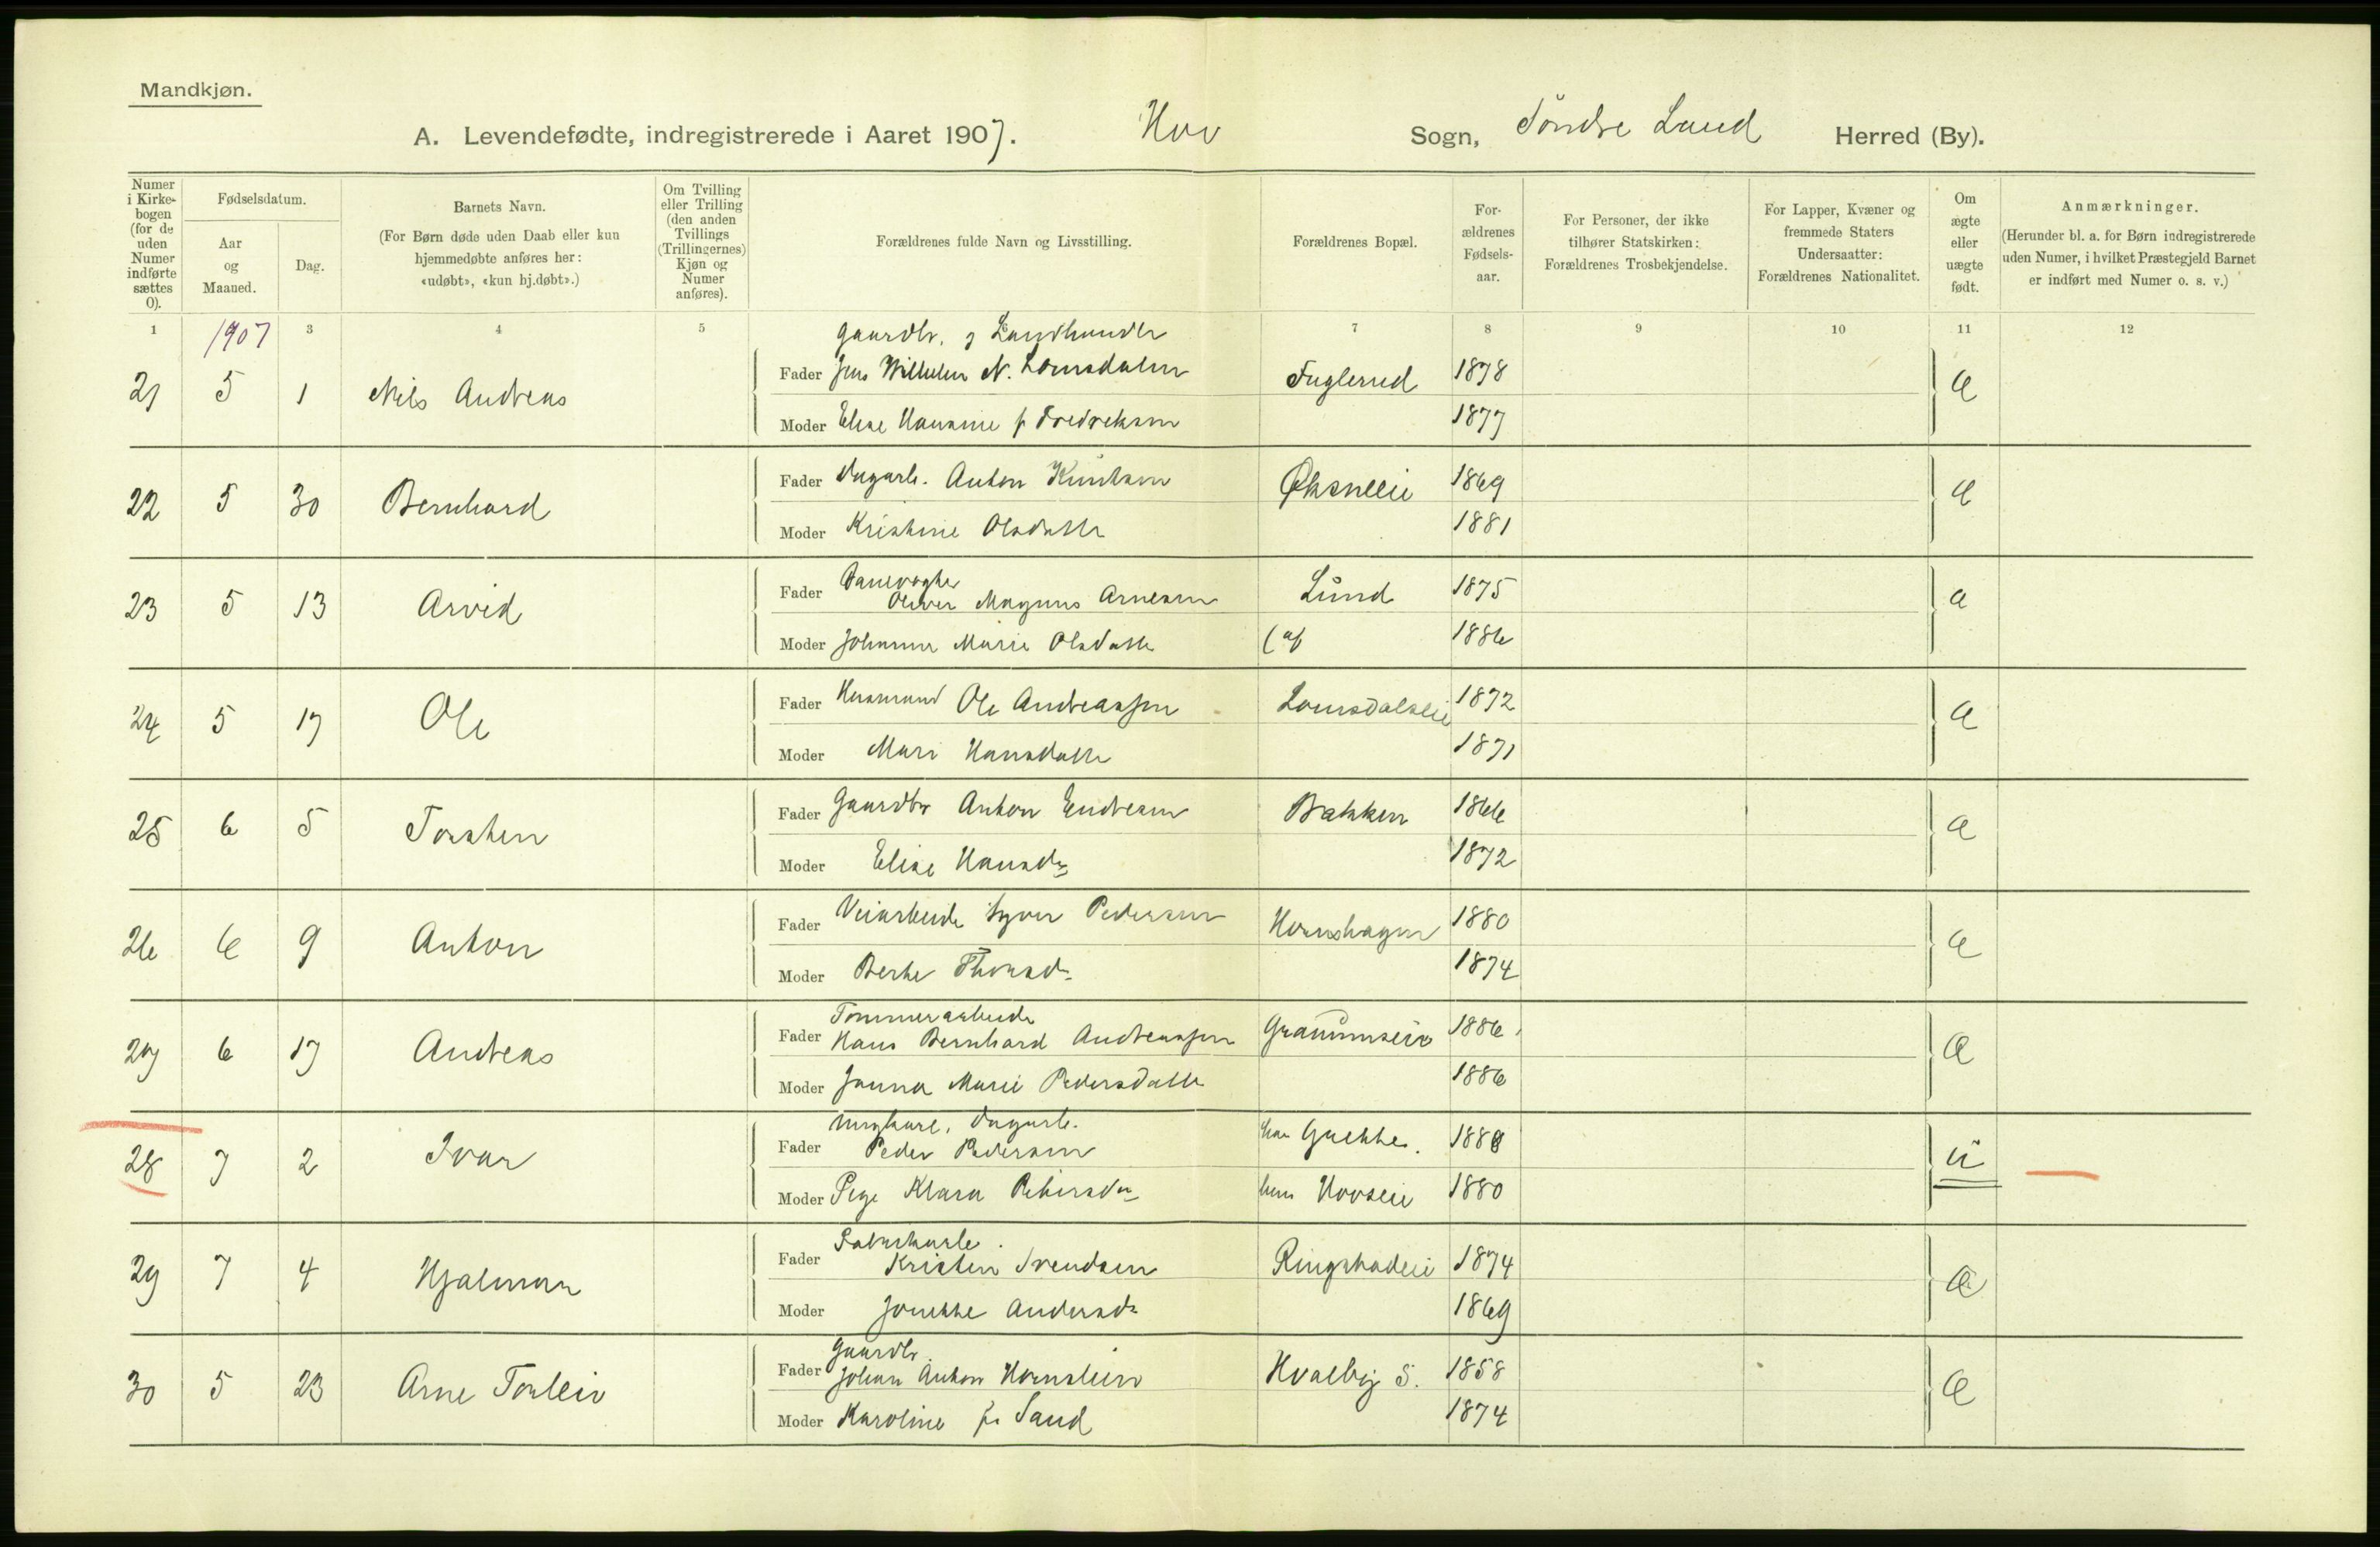 Mandkjøn.
A. Levendefødte, indregistrerede i Aaret 1907. Hov Sogn, Söndre Land Herred (By).
Numer i Kirke-bogen (for de uden Numer indførte sættes 0).
Fødselsdatum.
Aar og Maaned.
Dag.
Barnets Navn.
(For Børn døde uden Daab eller kun hjemmedøbte anføres her: «udøbt», «kun hj.døbt».)
Om Tvilling eller Trilling (den anden Tvillings (Trillingernes) Kjøn og Numer anføres).
Forældrenes fulde Navn og Livsstilling.
Forældrenes Bopæl.
For-ældrenes Fødsels-aar.
For Personer, der ikke tilhører Statskirken: Forældrenes Trosbekjendelse.
For Lapper, Kvæner og fremmede Staters Undersaatter: Forældrenes Nationalitet.
Om ægte eller uægte født.
Anmærkninger.
(Herunder bl. a. for Børn indregistrerede uden Numer, i hvilket Præstegjeld Barnet er indført med Numer o. s. v.)
1 1907 3 4 5 7 8 9 10 11 12
Gaardbr. og Landhandler
21 5 1 Nils Andreas Fader Jens Wilhelm N. Lomsdalen Fuglerud 1878 Æ
Moder Elise Hansine f. Fredriksen 1877
22 5 30 Bernhard Fader Dagarb. Anton Knutsen Øksneeie 1869 Æ
Moder Kristine Olsdatter 1881
23 5 13 Arvid Fader Banevogter
Oliver Magnus Arnesen Lund 1875 Æ
Moder Johanne Marie Olsdatter (af 1886
24 5 17 Ole Fader Husmand Ole Andreassen Lomsdalseie 1872 Æ
Moder Mari Hansdatter 1871
25 6 5 Torsten Fader Gaardbr Anton Endresen Bakken 1866 Æ
Moder Elise Hansdr 1872
26 6 9 Anton Fader Veiarbeider Syver Pedersen Hornshagen 1880 Æ
Moder Berte Thorsdr 1874
Tømmerarbeider
27 6 17 Andreas Fader Hans Bernhard Andreassen Granumseie 1886 Æ
Moder Janna Marie Pedersdatter 1886
Ungkarl, Dagarb.
28 7 2 Ivar Fader Peder Pedersen han 1888 u
Moder Pige Klara Petersdr hun Hovseie 1880
Fabrikarb.
29 7 4 Hjalmar Fader Kristen Svendsen Ringstadeie 1874 Æ
Moder Jonette Andersdr 1869
Gaardbr.
30 5 23 Arne Torleiv Fader Johan Anton Hornsleen Hvalby S. 1858 Æ
Moder Karoline f. Sand 1874